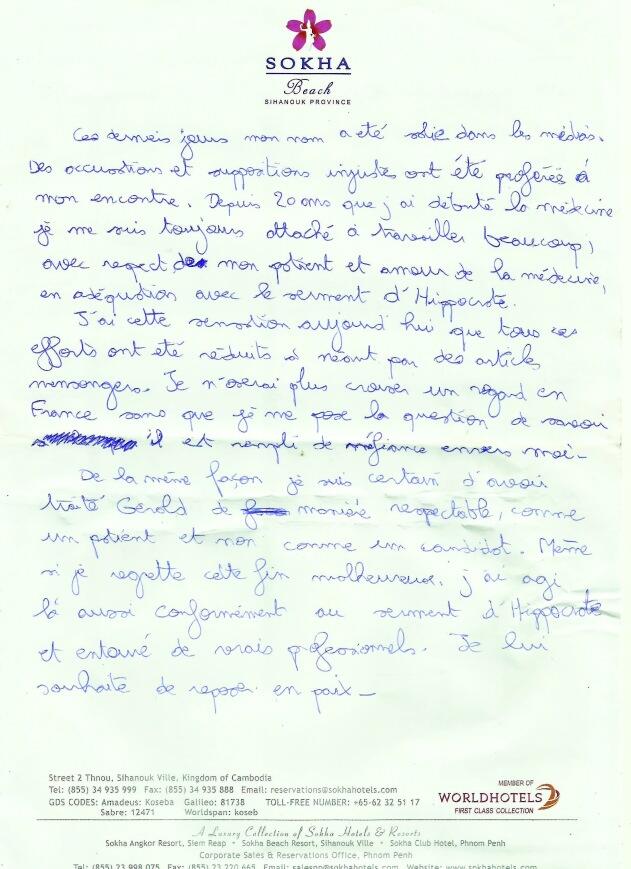 SOKHA
Beach
SIHANOUK PROVINCE
Ces derniers jours mon nom a été sali dans les médias.
Des accusations et suppositions injustes ont été proférées à
mon encontre. Depuis 20 ans que j'ai débuté la médecine
je me suis toujours attaché à travailler beaucoup,
avec respect de mon patient et amour de la médecine,
en adéquation avec le serment d'Hippocrate.
J'ai cette sensation aujourd'hui que tous ces
efforts ont été réduits à néant par des articles
mensongers. Je n'oserai plus croiser un regard en
France sans que je me pose la question de savoir
s'il est rempli de méfiance envers moi.
De la même façon je suis certain d'avoir
traité Gérald de manière respectable, comme
un patient et non comme un candidat. Même
si je regrette cette fin malheureuse, j'ai agi
là aussi conformément au serment d'Hippocrate
et entouré de vrais professionnels. Je lui
souhaite de reposer en paix_
Street 2 Thnou, Sihanouk Ville, Kingdom of Cambodia
Tel: (855) 34 935 999 Fax: (855) 34 935 888 Email: reservations@sokhahotels.com
GDS CODES: Amadeus: Koseba Galileo: 81738 TOLL-FREE NUMBER: +65-62 32 51 17
Sabre: 12471 Worldspan: koseb
MEMBER OF
WORLDHOTELS
FIRST CLASS COLLECTION
A Luxury Collection of Sokha Hotels & Resorts
Sokha Angkor Resort, Siem Reap • Sokha Beach Resort, Sihanouk Ville • Sokha Club Hotel, Phnom Penh
Corporate Sales & Reservations Office, Phnom Penh
Tel: (855) 23 998 075 Fax: (855) 23 220 665 Email: salespp@sokhahotels.com Website: www.sokhahotels.com